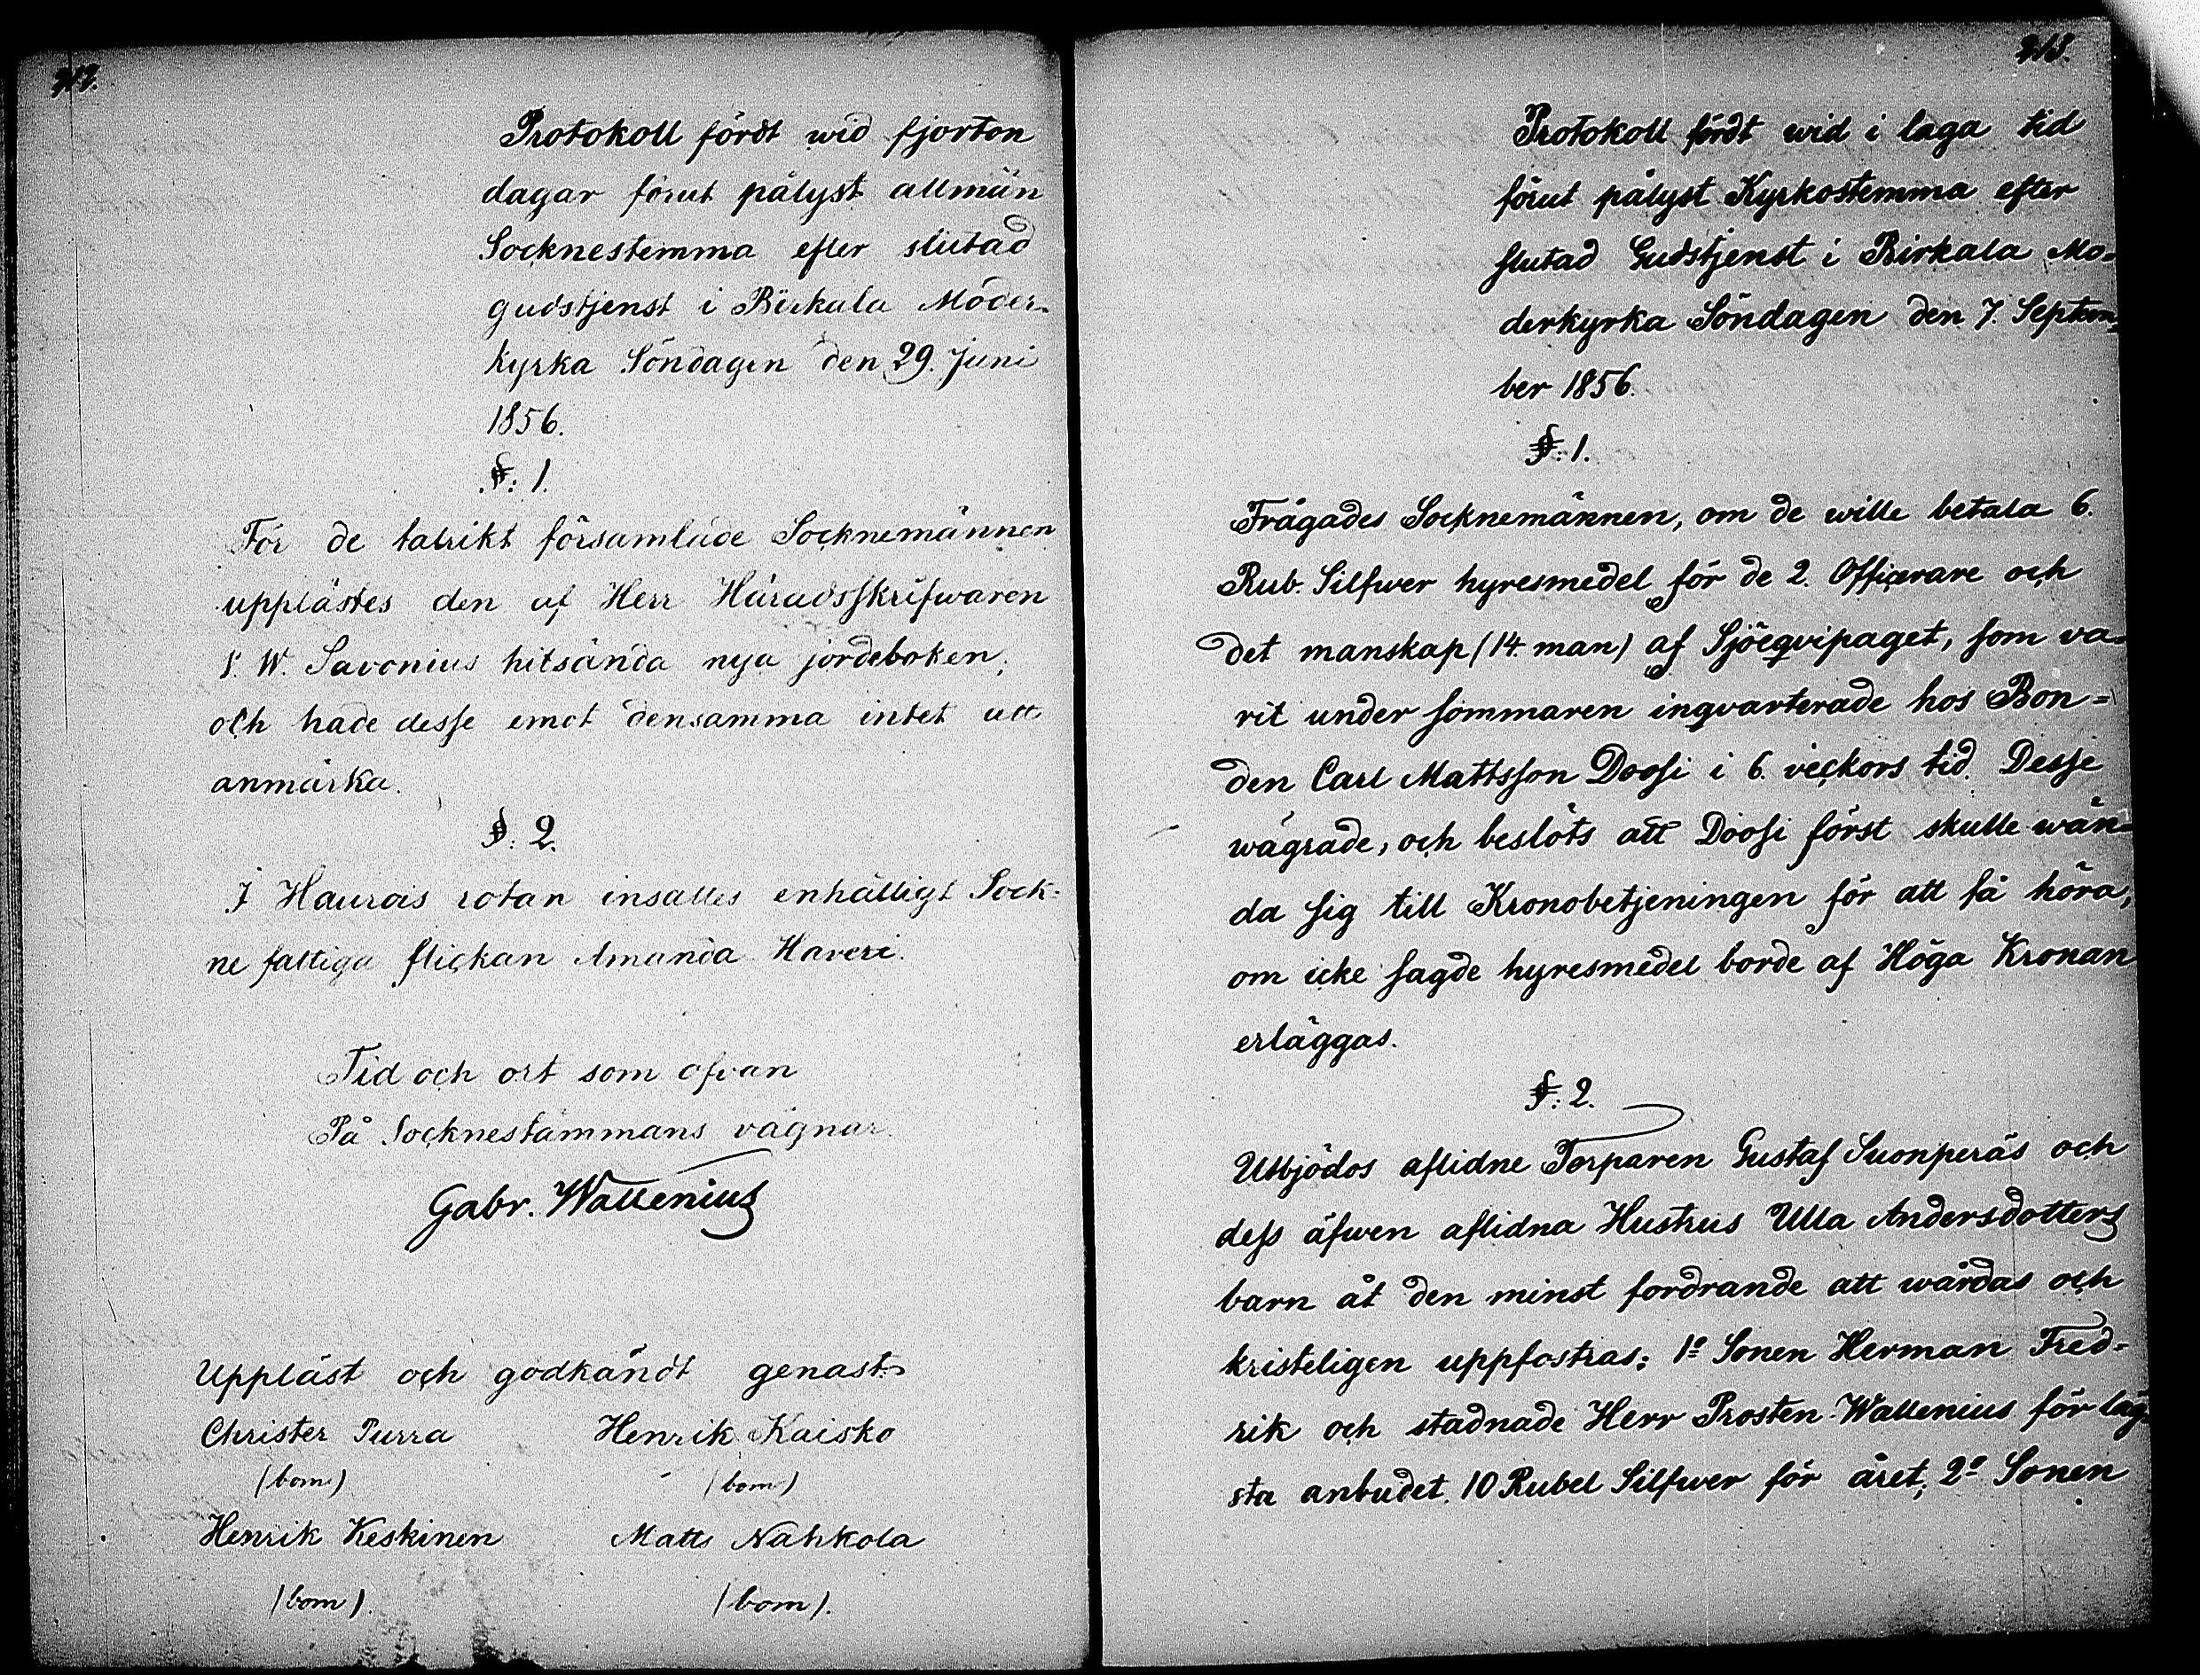 217.
Protokoll fördt wid fjorton
dagar förut pålyst allmän
Socknestemma efter slutad
gudstjenst i Birkala Moder-
kyrka Söndagen den 29. Juni
1856.
§: 1.
För de talrikt församlade Socknemännen
upplästes den af Herr Häradsskrifwaren
S. W. Savonius hitsända nya jordeboken,
och hade desse emot densamma intet att
anmärka.
§: 2.
I Haurois rotan insattes enhälligt Sock-
ne fattiga flickan Amanda Haveri.
Tid och ort som ofvan
På Socknestämmans vägnar.
Gabr. Wallenius
Uppläst och godkändt genast.
Christer Purra Henrik Kaisko
(bom) (bom)
Henrik Keskinen Matts Nahkola
(bom). (bom).
218.
Protokoll fördt wid i laga tid
förut pålyst Kyrkostemma efter
slutad Gudstjenst i Birkala Mo-
derkyrka Söndagen den 7. Septem-
ber 1856.
§: 1.
Frågades Socknemännen, om de wille betala 6.
Rub. Silfwer hyresmedel för de 2. Officerare och
det manskap (14. man) af Sjöeqvipaget, som va-
rit under sommaren inqvarterade hos Bon-
den Carl Mattsson Doosi i 6. veckors tid. Desse
wägrade, och beslöts att Doosi först skulle wän-
da sig till Kronobetjeningen för att få höra,
om icke sagde hyresmedel borde af Höga Kronan
erläggas.
§: 2.
Utbjödos aflidne Torparen Gustaf Suonperäs och
dess äfwen aflidna Hustrus Ulla Andersdotters
barn åt den minst fordrande att wårdas och
kristeligen uppfostras; 1º Sonen Herman Fred-
rik och stadnade Herr Prosten Wallenius för läg-
sta anbudet. 10 Rubel Silfwer för året; 2º Sonen